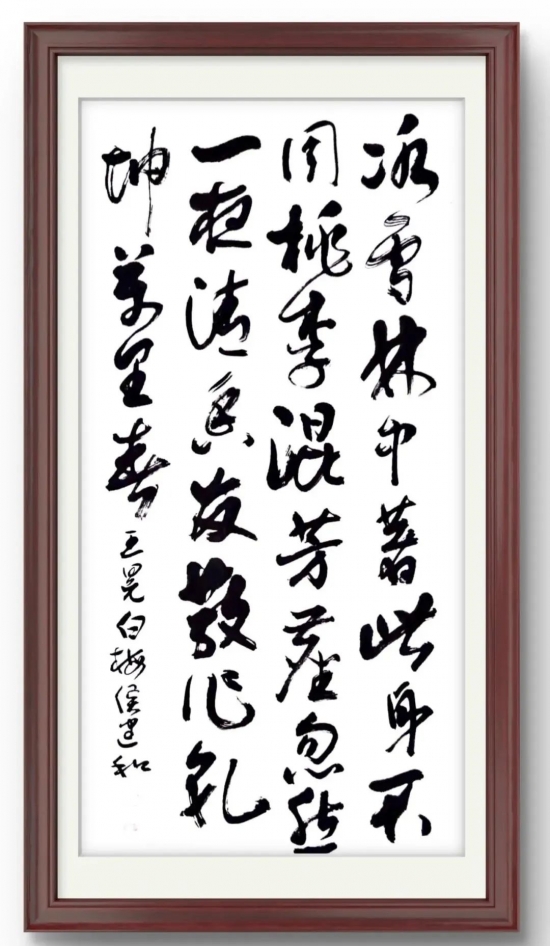 冰雪林中著此身不
同桃李混芳塵忽然
一夜清香发散作乾
坤萬里春 王冕白梅 侯建和